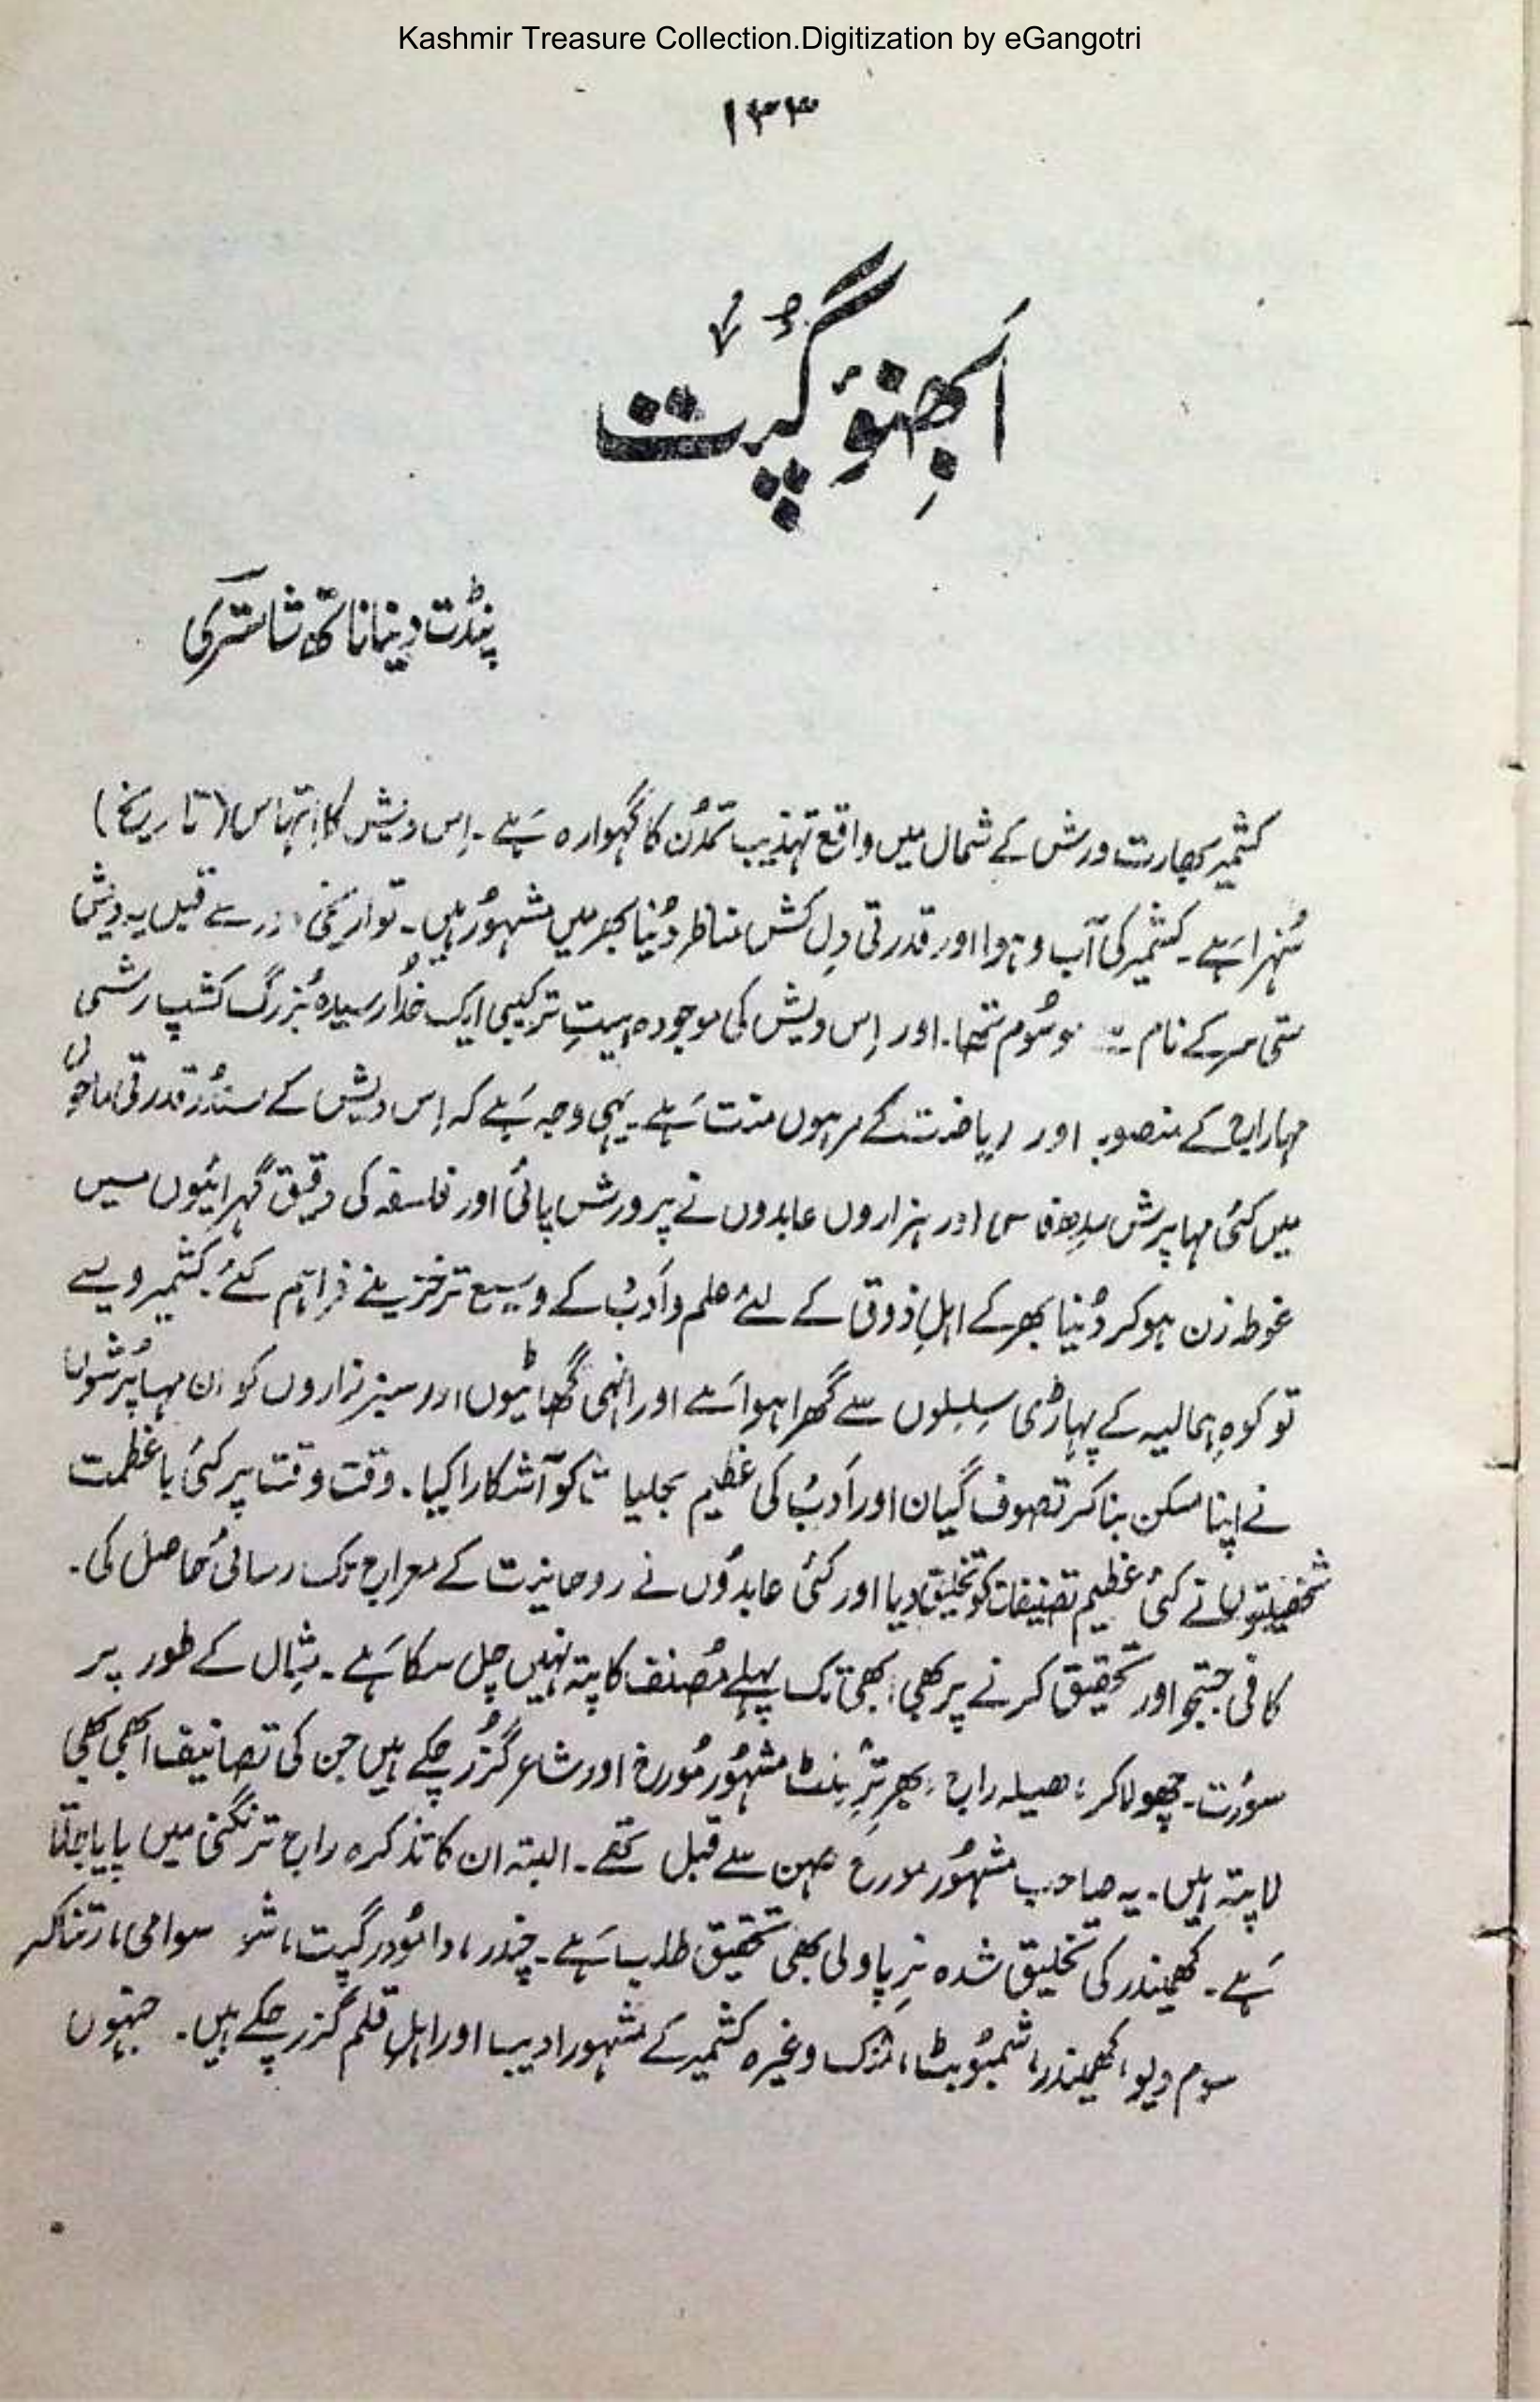 Kashmir Treasure Collection.Digitization by eGangotri
۱۳۳
اَبھِنوِ گُپت
پنڈت دینا ناتھ شاستری
کشمیر بھارت ورش کے شمال میں واقع تہذیب تمدُن کا گہوارہ ہَے ۔ اِس دیش کا اِتہاس (تاریخ)
سُنہرا ہَے ۔ کشمیر کی آب و ہوا اور قدرتی دِل کش مناظر دُنیا بھر میں مشہوُر ہیں ۔ تواریخی دور سے قبل یہ دیش
ستی سر کے نام سے موسُوم تھا ۔ اور اِس دیش کی موجودہ ہیتِ ترکیبی ایک خُدا رسیدہ بُزرگ کشپ رشی
مہاراج کے منصوبہ اور ریاضت کے مرہوں منت ہَے ۔ یہی وجہ ہَے کہ اِس دیش کے سندُر قدرتی ماحول
میں کئی مہاپرش سِدھ اور ہزاروں عابدوں نے پرورش پائی اور فلسفہ کی دقیق گہرائیوں میں
غوطہ زن ہو کر دُنیا بھر کے اہلِ ذوق کے لئے علم و اَدب کے وسیع تر خزینے فراہم کئے ۔ کشمیر ویسے
تو کوہِ ہمالیہ کے پہاڑی سِلسِلوں سے گھرا ہوا ہَے اور انہی گھاٹیوں اور سبزہ زاروں کو ان مہاپُرشوں
نے اپنا مسکن بنا کر تصوف گیان اور اَدب کی عظیم تجلیات کو آشکارا کیا ۔ وقت وقت پر کئی باعظمت
شخصیتوں نے کئی عظیم تصنیفات کو تخلیق دیا اور کئی عابدوُں نے روحانیت کے معراج تک رسائی حاصل کی ۔
کافی جستجو اور تحقیق کرنے پر بھی ابھی تک پہلے مُصنف کا پتہ نہیں چل سکا ہَے ۔ مِثال کے طور پر
سوُرت ۔ چھولاکر، ھیلہ راج، مشہوُر مُورخ اور شاعر گُزر چکے ہیں جن کی تصانیف ابھی بھی
لاپتہ ہیں ۔ یہ صاحب مشہوُر مورخ کلہن سے قبل تھے ۔ البتہ ان کا تذکرہ راج ترنگنی میں پایا جاتا
ہَے ۔ کھیمندر کی تخلیق شدہ نرِپاولی بھی تحقیق طلب ہَے ۔ چندر، دامُودر گپت، سوامی، رتناکر
سوم دیو، کھیمندر، شمبوُ بٹ، منکھ وغیرہ کشمیر کے مشہور ادیب اور اہلِ قلم گزر چکے ہیں ۔ جنہوں